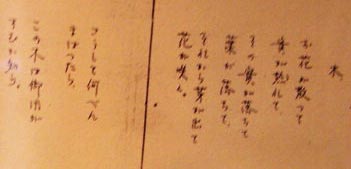 木
お花が散って
実が熟れて、
その実が落ちて
葉が落ちて、
それから芽が出て
花が咲く。
そうして何べん
まわったら、
この木は御用が
すむか知ら。